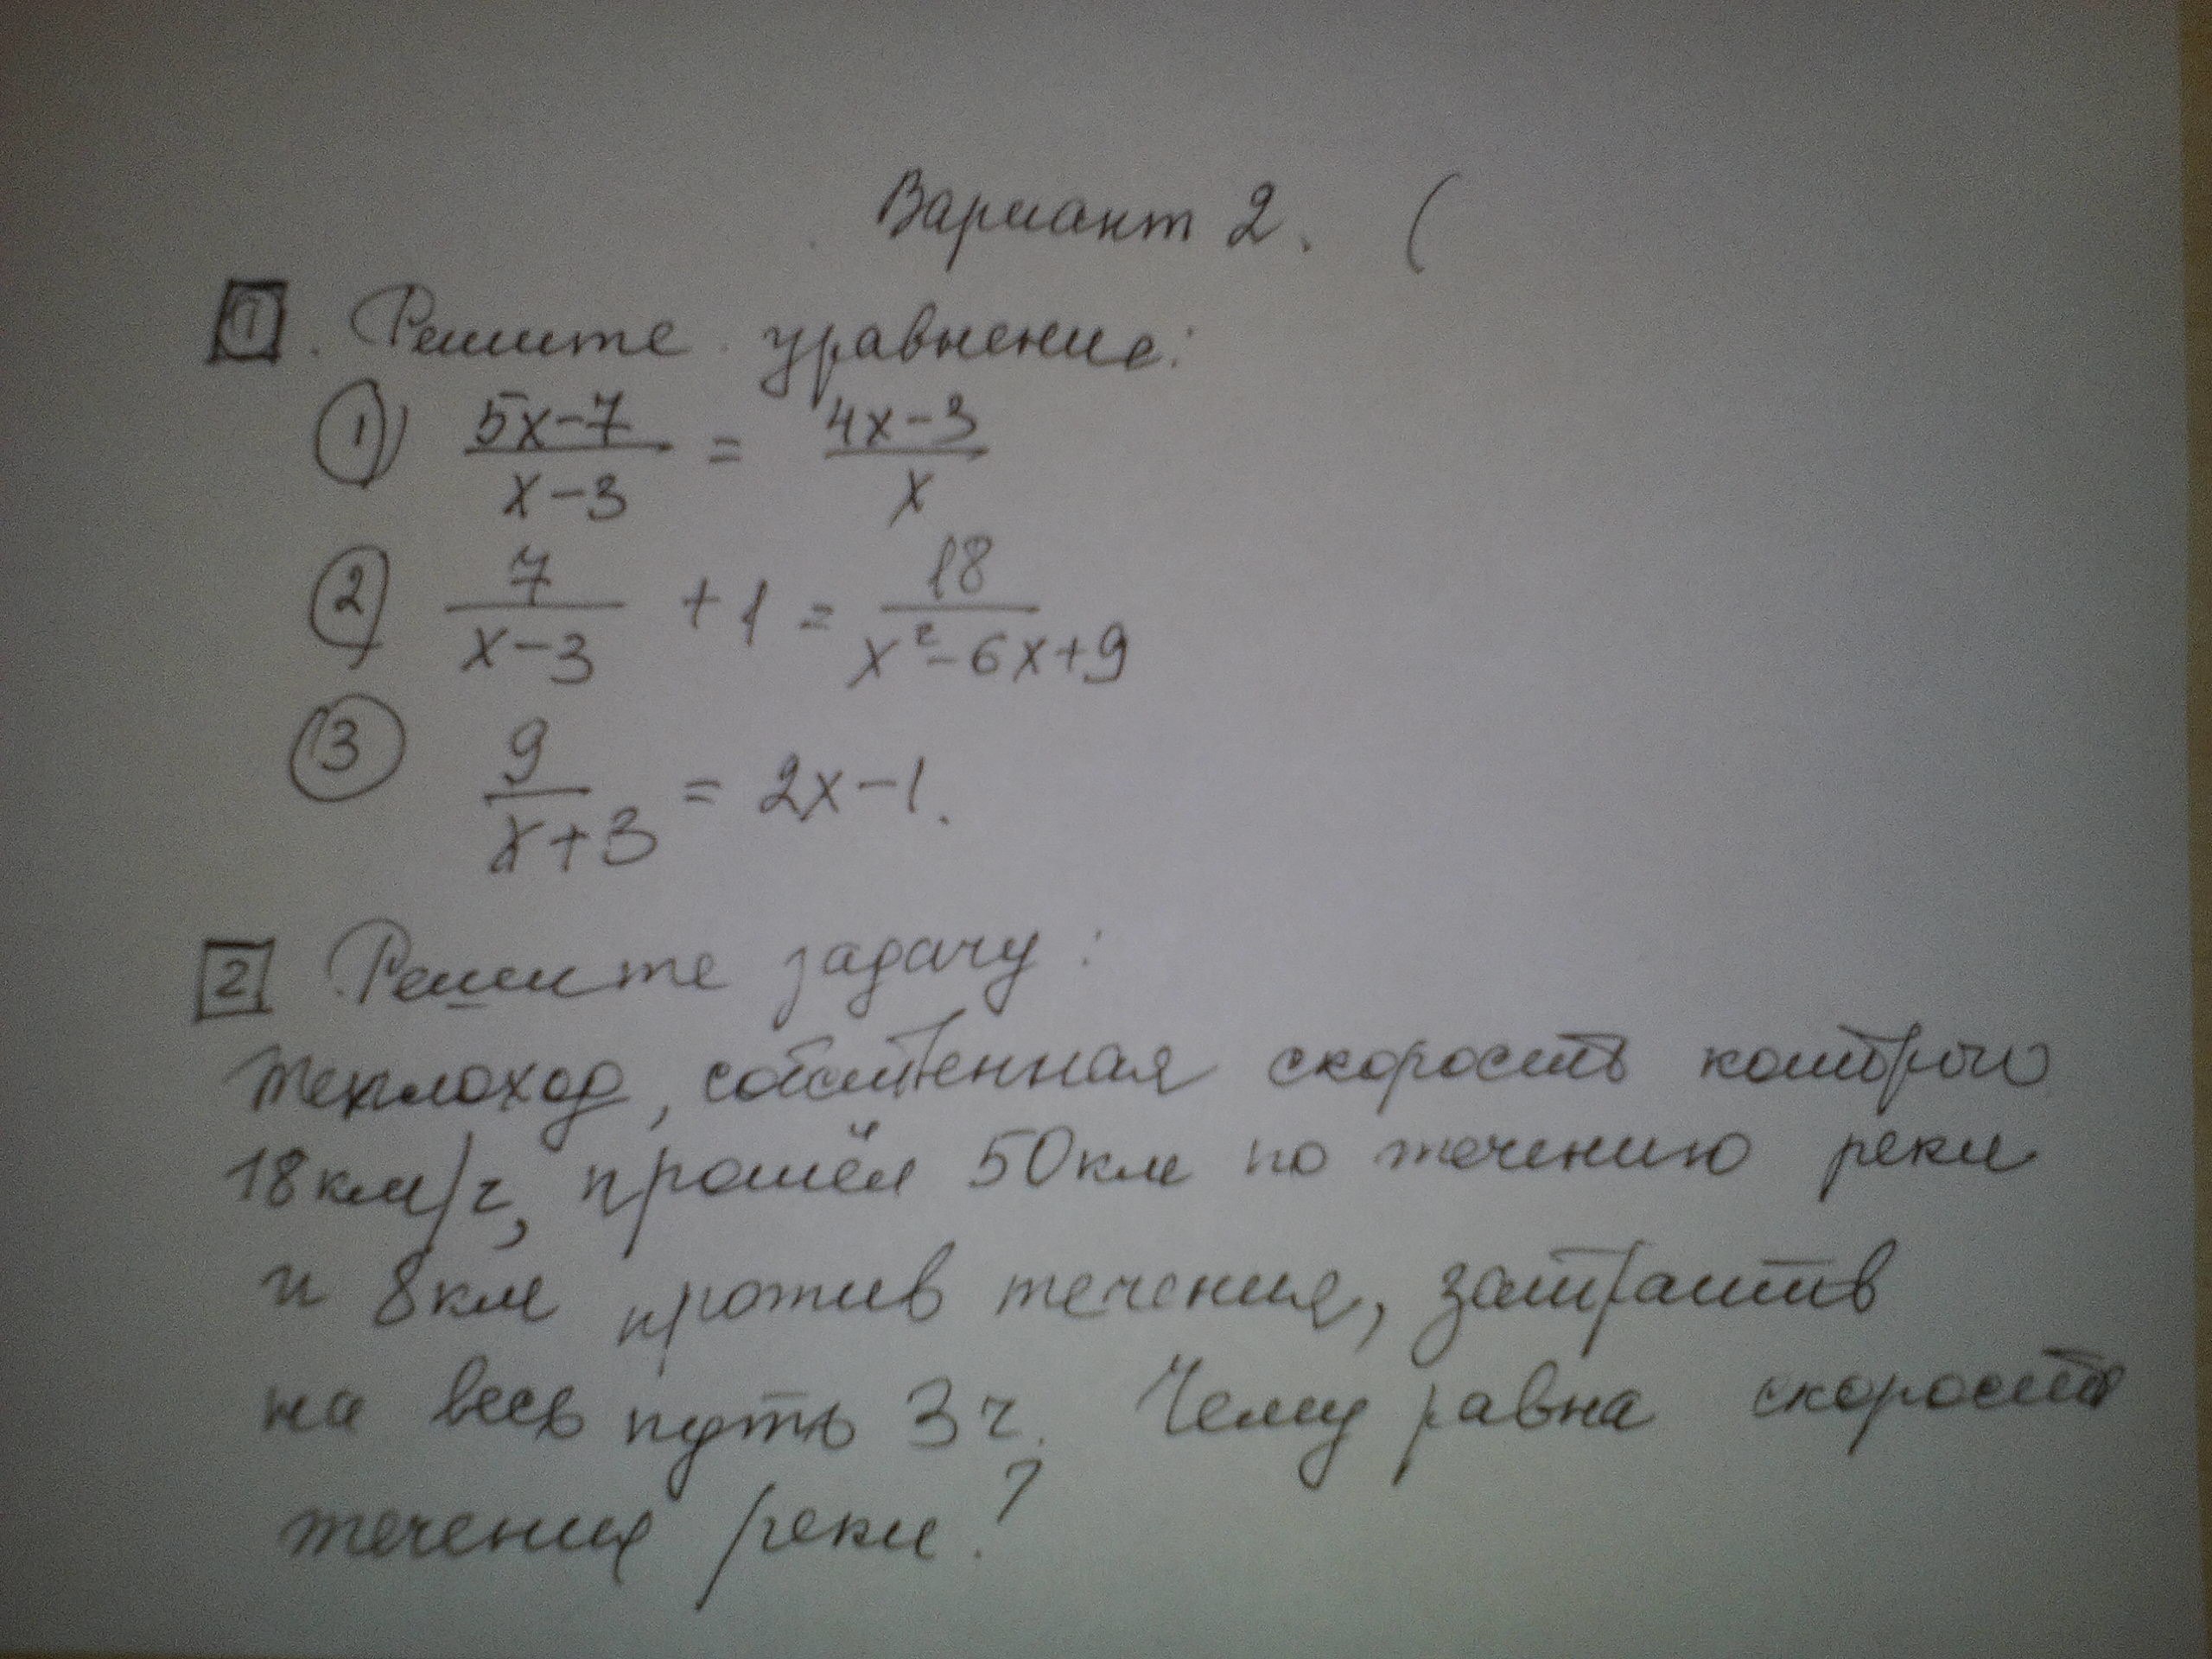 Вариант 2. (
1. Решите уравнение:
1) (5x-7)/(x-3) = (4x-3)/x
2) 7/(x-3) + 1 = 18/(x²-6x+9)
3 9/(x+3) = 2x-1.
2 Решите задачу:
Теплоход, собственная скорость которого
18км/ч, прошёл 50км по течению реки
и 8км против течения, затратив
на весь путь 3ч. Чему равна скорость
течения реки?